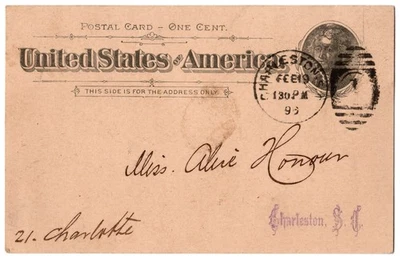 POSTAL CARD – ONE CENT.
United States of America
THIS SIDE IS FOR THE ADDRESS ONLY.
CHARLESTON
FEB 19
130 PM
93
Miss. Alice Honour
21. Charlotte
Charleston, S. C.